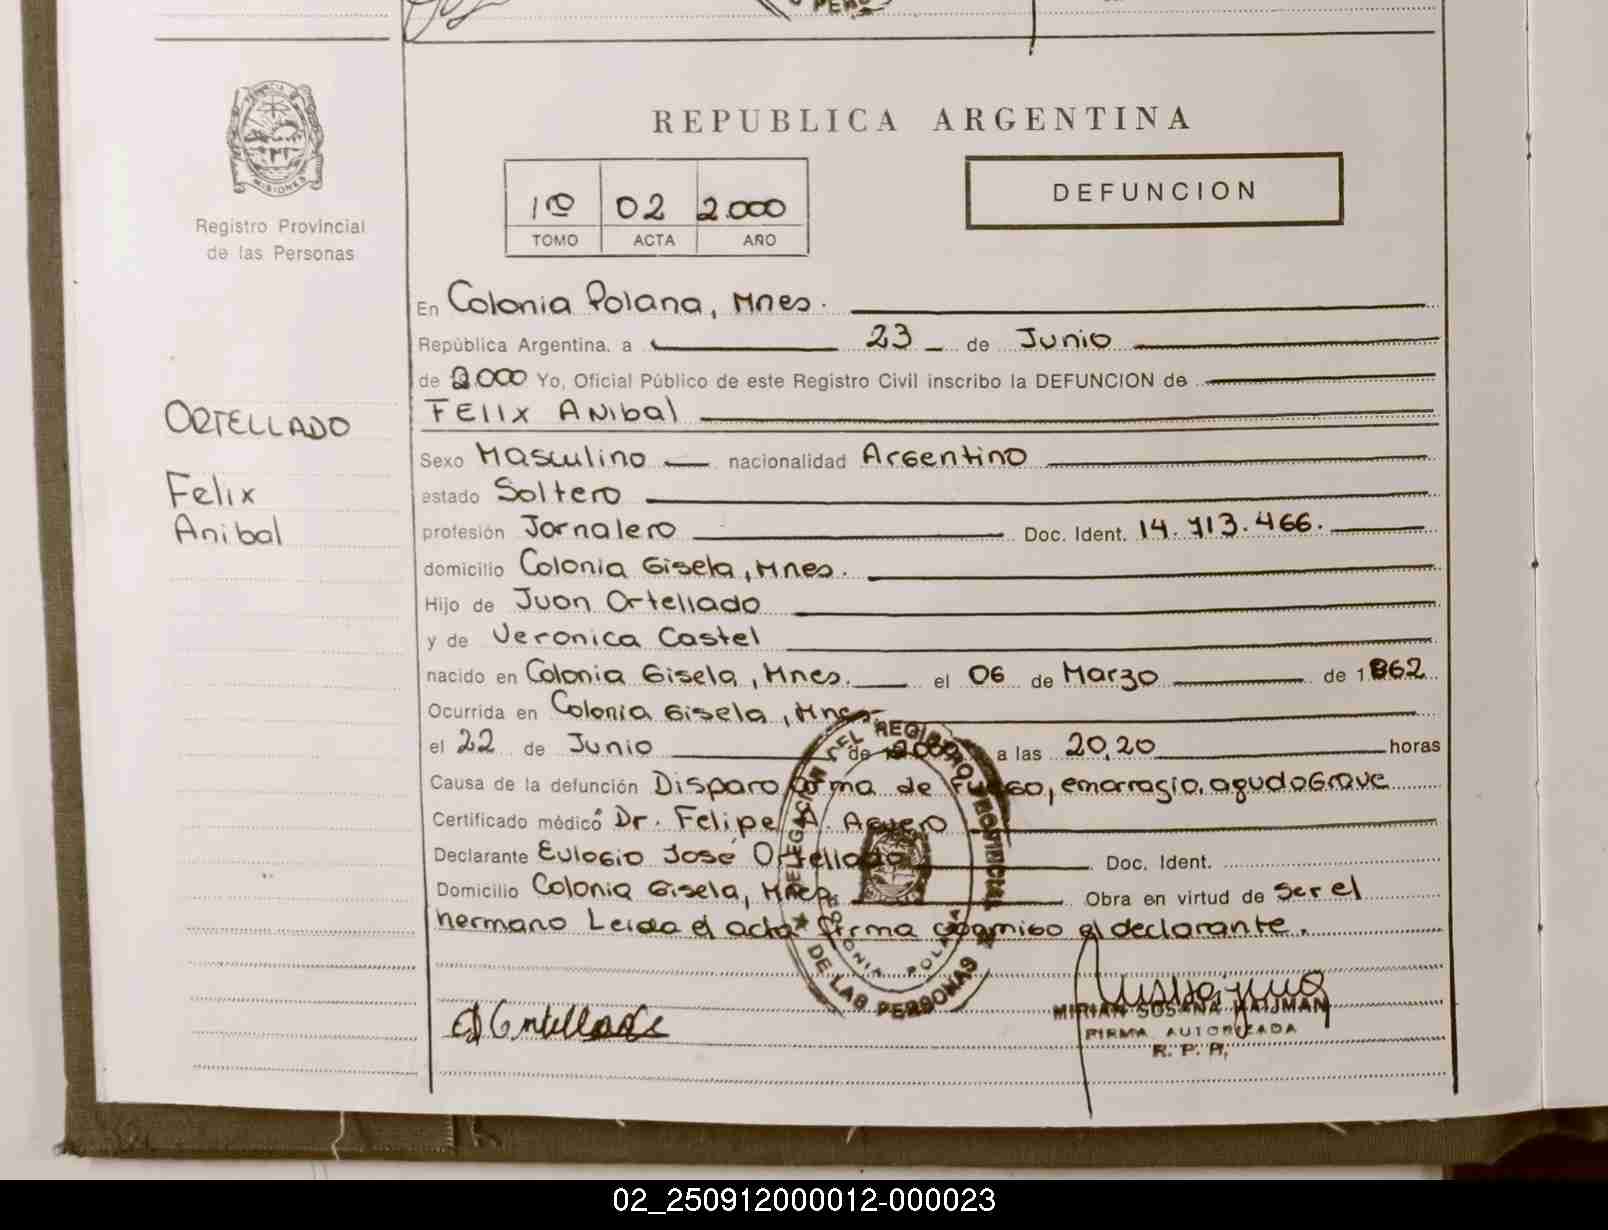 REPUBLICA ARGENTINA
PROVINCIA DE
MISIONES
Registro Provincial
de las Personas
1º 02 2.000
TOMO ACTA AÑO
DEFUNCION
ORTELLADO
Felix
Anibal
En Colonia Polana, Mnes.
República Argentina, a 23 de Junio
de 2.000 Yo, Oficial Público de este Registro Civil inscribo la DEFUNCION de
FELIX ANIBAL
Sexo Masculino nacionalidad Argentino
estado Soltero
profesión Jornalero Doc. Ident. 14.713.466.
domicilio Colonia Gisela, Mnes.
Hijo de Juan Ortellado
y de Veronica Castel
nacido en Colonia Gisela, Mnes. el 06 de Marzo de 1962
Ocurrida en Colonia Gisela, Mnes.
el 22 de Junio de 2.000 a las 20,20 horas
Causa de la defunción Disparo arma de Fuego, emorragia, agudo Grave
Certificado médico Dr. Felipe A. Aguero
Declarante Eulogio José Ortellado Doc. Ident.
Domicilio Colonia Gisela, Mnes. Obra en virtud de ser el
hermano Leida el acta firma conmigo el declarante.
DELEGACION DEL REGISTRO PROVINCIAL
DE LAS PERSONAS
COLONIA POLANA
MIRIAN SUSANA HAIJMAN
FIRMA AUTORIZADA
R. P. P.
02_250912000012-000023